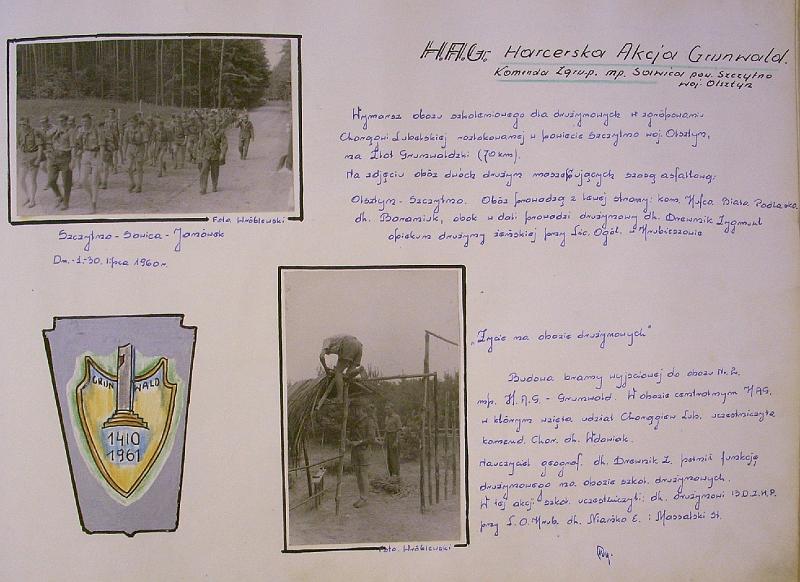 H.A.G. Harcerska Akcja Grunwald.
Komenda Zgrup. mp. Sawica pow. Szczytno
woj. Olsztyn
Wymarsz obozu szkoleniowego dla drużynowych w zgrupowaniu
Chorągwi Lubelskiej rozlokowanej w powiecie Szczytno woj. Olsztyn,
na Zlot Grunwaldzki (70 km).
Na zdjęciu obóz dwóch drużyn maszerujących szosą asfaltową:
Olsztyn - Szczytno. Obóz prowadzą z lewej strony: kom. Hufca Biała Podlaska
dh. Baraniuk, obok w dali prowadzi drużynowy dh. Drewnik Zygmunt
opiekun drużyny żeńskiej przy Lic. Ogól. w Hrubieszowie
Foto. Wróblewski
Szczytno - Sawica - Janówek
Dn. -1.-30. lipca 1960 r.
GRUN WALD
1410
1961
„Życie na obozie drużynowych"
Budowa bramy wyjściowej do obozu Nr. 2.
mp. H.A.G. - Grunwald. W obozie centralnym HAG.
w którym wzięła udział Chorągiew Lub. uczestniczyła
komend. Chor. dh. Wdowiak.
Nauczyciel geograf. dh. Drewnik Z. pełnił funkcję
drużynowego na obozie szkol. drużynowych.
W tej akcji szkol. uczestniczyli: dh. drużynowi 13 D.Z.H.P.
przy L.O. Hrub. dh. Niańko E. i Massalski St.
Foto. Wróblewski